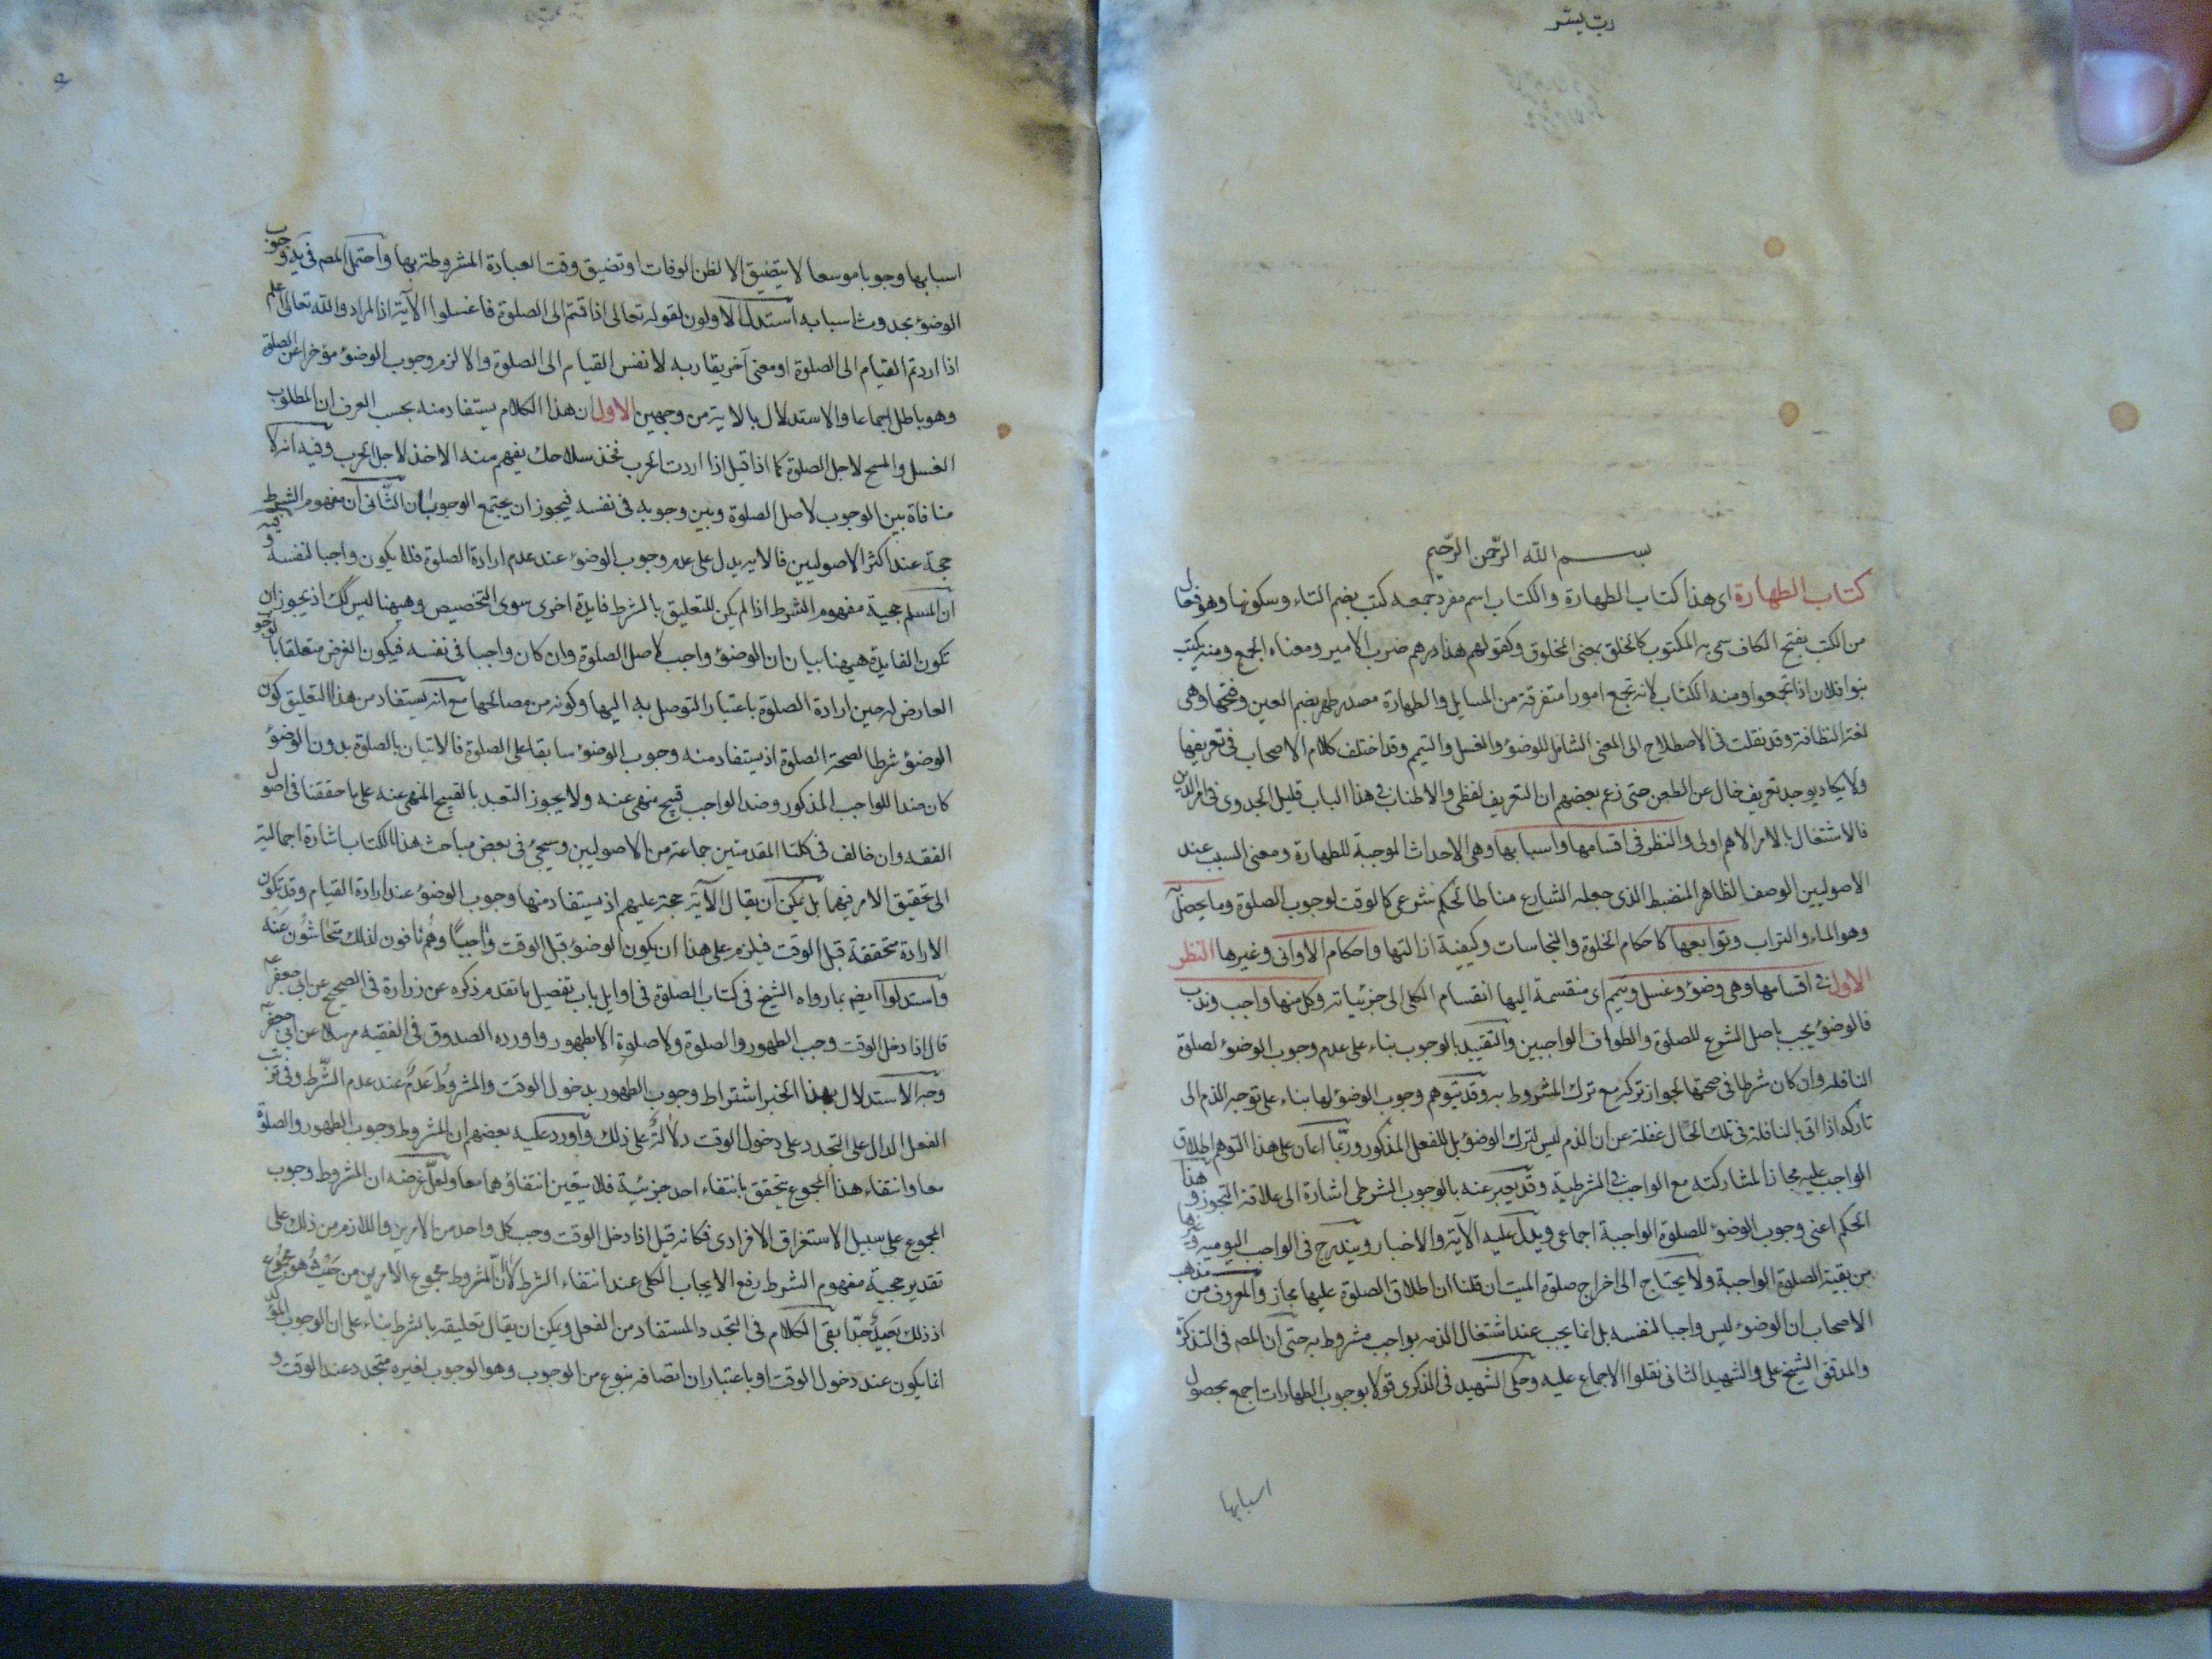 رب يسر
بسم الله الرحمن الرحيم
كتاب الطهارة اى هذا كتاب الطهارة والكتاب اسم مفرد جمعه كتب بضم التاء وسكونها وهو فعال
من الكتب بفتح الكاف سمى به المكتوب كالخلق بمعنى المخلوق وكقولهم هذا درهم ضرب الامير ومعناه الجمع ومنه يكتب
بنو فلان اذا تجمعوا ومنه الكتاب لانه تجمع امورا متفرقة من المسايل والطهارة مصدر طهر بضم العين وفتحها وهى
لغة النظافة وقد نقلت فى الاصطلاح الى المعنى الشامل للوضوء والغسل والتيمم وقد اختلف كلام الاصحاب فى تعريفها
ولا يكاد يوجد تعريف خال عن الطعن حتى زعم بعضهم ان التعريف لفظى والاطناب فى هذا الباب قليل الجدوى فى امر الدين
فالاشتغال بالامر الاهم اولى والنظر فى اقسامها واسبابها وهى الاحداث الموجبة للطهارة ومعنى السبب عند
الاصوليين الوصف الظاهر المنضبط الذى جعله الشارع مناطا لحكم شرعى كالوقت لوجوب الصلوة وما يحصل به
وهو الماء والتراب وتوابعها كاحكام الخلوة والنجاسات وكيفية ازالتها واحكام الاوانى وغيرها النظر
الاول فى اقسامها وهى وضوء وغسل وتيمم اى منقسمة اليها انقسام الكلى الى جزئياته وكل منها واجب وندب
فالوضوء يجب باصل الشرع للصلوة والطواف الواجبين والتقييد بالوجوب بناء على عدم وجوب الوضوء لصلوة
النافلة وان كان شرطا فى صحتها لجواز تركه مع ترك المشروط به وقد يتوهم وجوب الوضوء لها بناء على توجه الذم الى
تاركه اذا اتى بالنافلة فى تلك الحال غفلة عن ان الذم ليس لترك الوضوء بل للفعل المذكور وربما اعان على هذا التوهم اطلاق
الواجب عليه مجازا لمشاركته مع الواجب فى الشرطية وقد يعبر عنه بالوجوب الشرطى اشارة الى علاقة التجوز وهذا
الحكم اعنى وجوب الوضوء للصلوة الواجبة اجماعى ويدل عليه الآية والاخبار ويندرج فى الواجب اليومية وغيرها
من بقية الصلوة الواجبة ولا يحتاج الى اخراج صلوة الميت ان قلنا ان اطلاق الصلوة عليها مجاز والمعروف من مذهب
الاصحاب ان الوضوء ليس واجبا لنفسه بل انما يجب عند اشتغال الذمه بواجب مشروط به حتى ان المصر فى التذكرة
والمدقق الشيخ على والشهيد الثانى نقلوا الاجماع عليه وحكى الشهيد فى الذكرى قولا بوجوب الطهارات اجمع بحصول
اسبابها
اسبابها وجوبا موسعا لا يتضيق الا لظن الوفات او تضيق وقت العبادة المشروطة بها واحتمل المصر فى وجوب
الوضوء بحدوث اسبابه استدل الاولون لقوله تعالى اذا قمتم الى الصلوة فاغسلوا الآية اذ المراد والله تعالى اعلم
اذا اردتم القيام الى الصلوة او معنى آخر يقاربه لا نفس القيام الى الصلوة والا لزم وجوب الوضوء مؤخرا عن الصلوة
وهو باطل اجماعا والاستدلال بالآية من وجهين الاول ان هذا الكلام يستفاد منه بحسب العرف ان المطلوب
الغسل والمسح لاجل الصلوة كما اذا قيل اذا اردت الحرب فخذ سلاحك يفهم منه الاخذ لاجل الحرب وفيه انه لا
منافاة بين الوجوب لاصل الصلوة وبين وجوبه فى نفسه فيجوز ان يجتمع الوجوبان الثانى ان مفهوم الشرط
حجة عند اكثر الاصوليين فالآية يدل على عدم وجوب الوضوء عند عدم ارادة الصلوة فلا يكون واجبا لنفسه وفيه
ان المسلم حجية مفهوم الشرط اذا لم يكن للتعليق بالشرط فايدة اخرى سوى التخصيص وهيهنا ليس كك اذ يجوز ان
تكون الفايدة هيهنا بيان ان الوضوء واجب لاصل الصلوة وان كان واجبا فى نفسه فيكون الغرض متعلقا بالوجوب
العارض له حين ارادة الصلوة باعتبار التوصل به اليها وكونه من مصالحها مع انه يستفاد من هذا التعليق كون
الوضوء شرطا لصحة الصلوة اذ يستفاد منه وجوب الوضوء سابقا على الصلوة فالاتيان بالصلوة بدون الوضوء
كان ضدا للواجب المذكور وضد الواجب قبيح منهى عنه ولا يجوز التعبد بالقبيح المنهى عنه على ما حققنا فى اصول
الفقه وان خالف فى كلتا المقدمتين جماعة من الاصوليين وسيجئ فى بعض مباحث هذا الكتاب اشارة اجمالية
الى تحقيق الامر فيهما بل يمكن ان يقال الآية حجة عليهم اذ يستفاد منها وجوب الوضوء عند ارادة القيام وقد تكون
الارادة متحققة قبل الوقت فيلزم على هذا ان يكون الوضوء قبل الوقت واجبا وهم نافون لذلك متحاشون عنه
واستدلوا ايضا بما رواه الشيخ فى كتاب الصلوة فى اوايل باب تفصيل ما تقدم ذكره عن زرارة فى الصحيح عن ابى جعفر ع
قال اذا دخل الوقت وجب الطهور والصلوة ولا صلوة الا بطهور واورده الصدوق فى الفقيه مرسلا عن ابى جعفر ع
وجه الاستدلال بهذا الخبر اشتراط وجوب الطهور بدخول الوقت والمشروط عدم عند عدم الشرط وفى ترتب
الفعل الدال على التجدد على دخول الوقت دلالة على ذلك واورد عليه بعضهم ان المشروط وجوب الطهور والصلوة
معا وانتفاء هذا المجموع يتحقق بانتفاء احد جزئية فلا يتعين انتفاؤهما معا ولعل غرضه ان المشروط وجوب
المجموع على سبيل الاستغراق الافرادى فكانه قيل اذا دخل الوقت وجب كل واحد من الامرين واللازم من ذلك على
تقدير حجية مفهوم الشرط رفع الايجاب الكلى عند انتفاء الشرط لا ان المشروط مجموع الامرين من حيث هو مجموع
اذ ذلك بعيد جدا بقى الكلام فى التجدد المستفاد من الفعل ويمكن ان يقال تعليقه بالشرط بناء على ان الوجوب المؤكد
انما يكون عند دخول الوقت او باعتبار ان اتصافه بنوع من الوجوب وهو الوجوب لغيره متجدد عند الوقت و